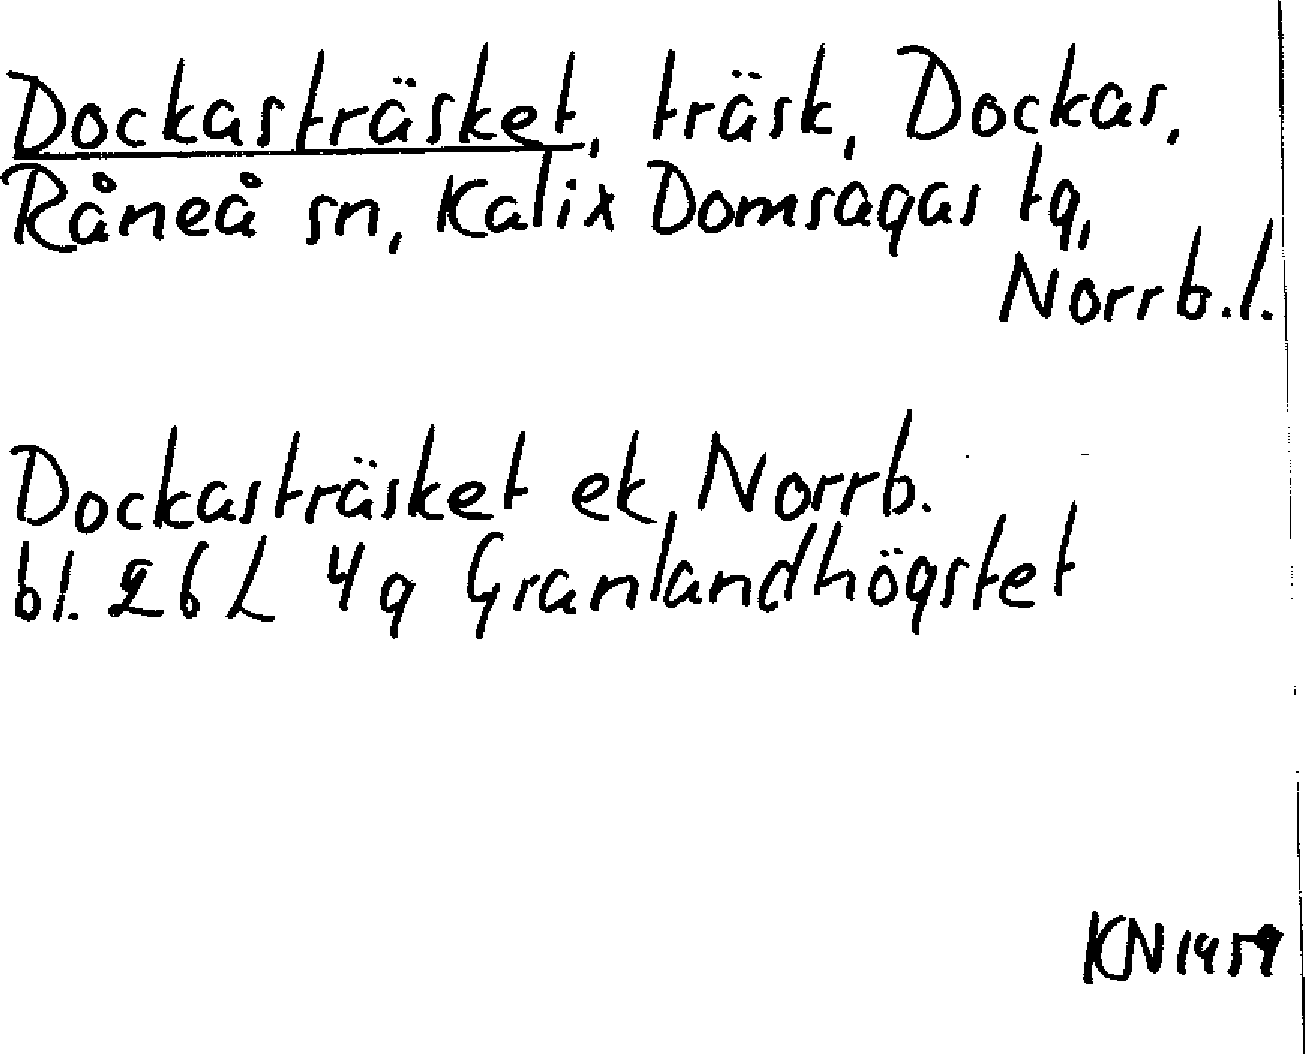 Dockasträsket, träsk, Dockas,
Råneå sn, Kalix Domsagas tg,
Norrb.l.
Dockasträsket ek. Norrb.
bl. 26 L 4 g Granlandhögstet
KN 1459